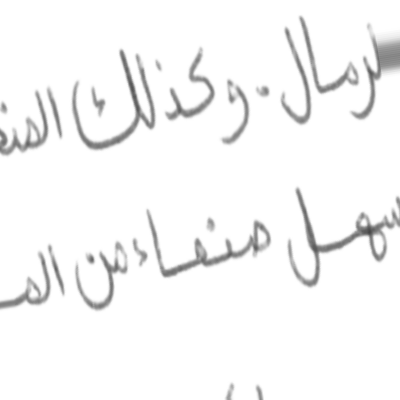 لرمال. وكذلك المنـ
سهل صنعاء من الصـ